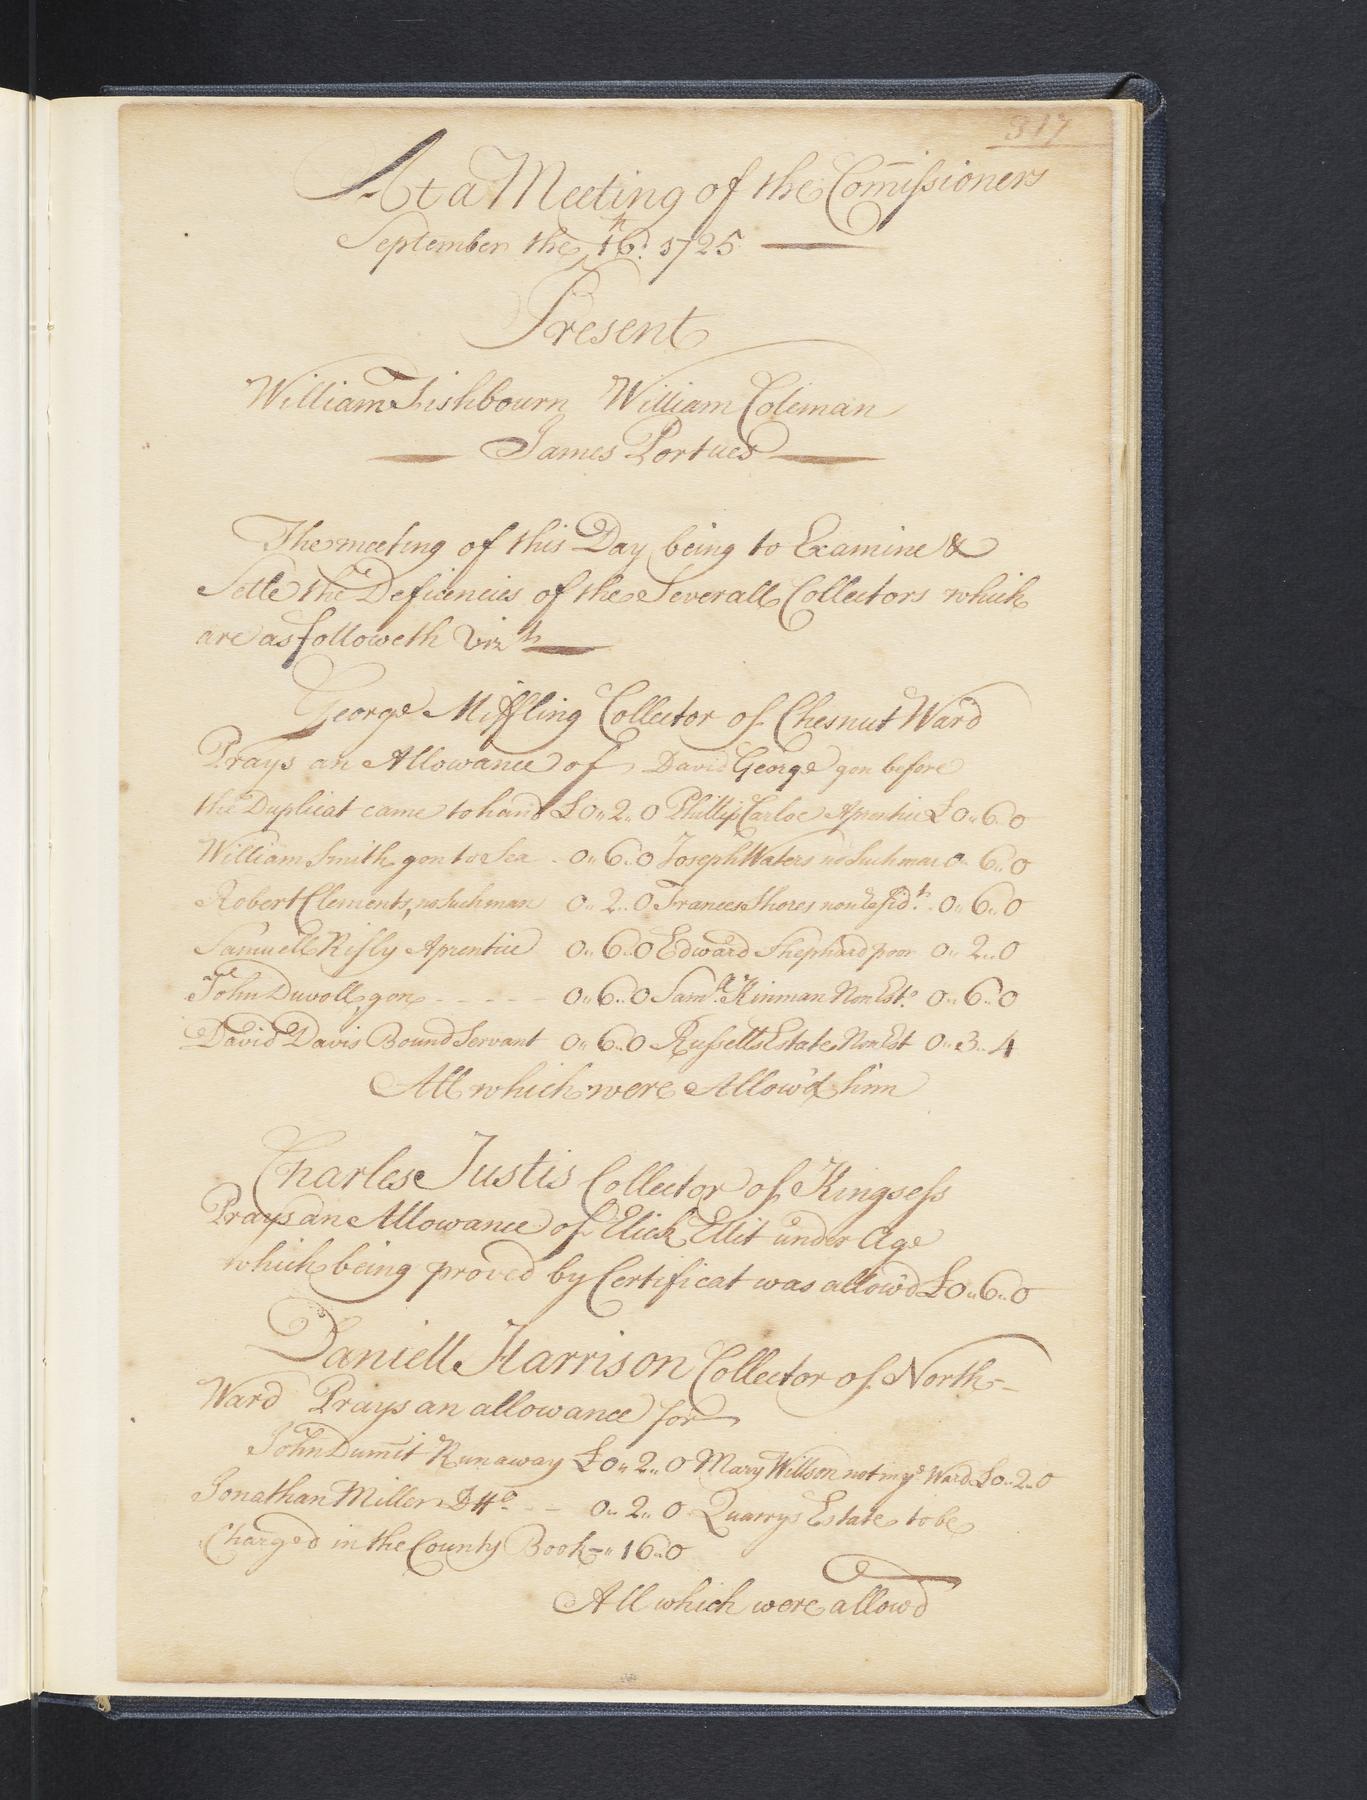 317
At a Meeting of the Com̄issioners
September the 16th. 1725
Present
William Fishbourn William Coleman
James Portues
The meeting of this Day being to Examine &
Setle the Deficiencies of the Severall Collectors which
are as followeth Vizt
George Miffling Collector of Chesnut Ward
Prays an Allowance of David George gon before
the Duplicat came to hand £0,,2,,0 Phillip Carloe Aprentice £0,,6,,0
William Smith gon to Sea - 0,,6,,0 Joseph Waters no Such man 0,,6,,0
Robert Clements, no Such man 0,,2,,0 Frances Shores non Residt. 0,,6,,0
Samuell Rifly Aprentice 0,,6,,0 Edward Shephard poor 0,,2,,0
John Duvoll, gon - - - - - 0,,6,,0 Samll. Kinman Non Esto 0,,6,,0
David Davis Bound Servant 0,,6,,0 Russells Estate Non Est 0,,3,,4
All which were Allow'd him
Charles Justis Collector of Kingsess
Prays an Allowance of Elick Ellit under Age
which being proved by Certificat was allow'd £0,,6,,0
Daniell Harrison Collector of North-
Ward Prays an allowance for
John Dum̄it Runaway £0,,2,,0 Mary Willson not in ye Ward £0,,2,,0
Jonathan Miller Do - - 0,,2,,0 Quarrys Estate to be
Charged in the County Book -,,16,,0
All which were allowd